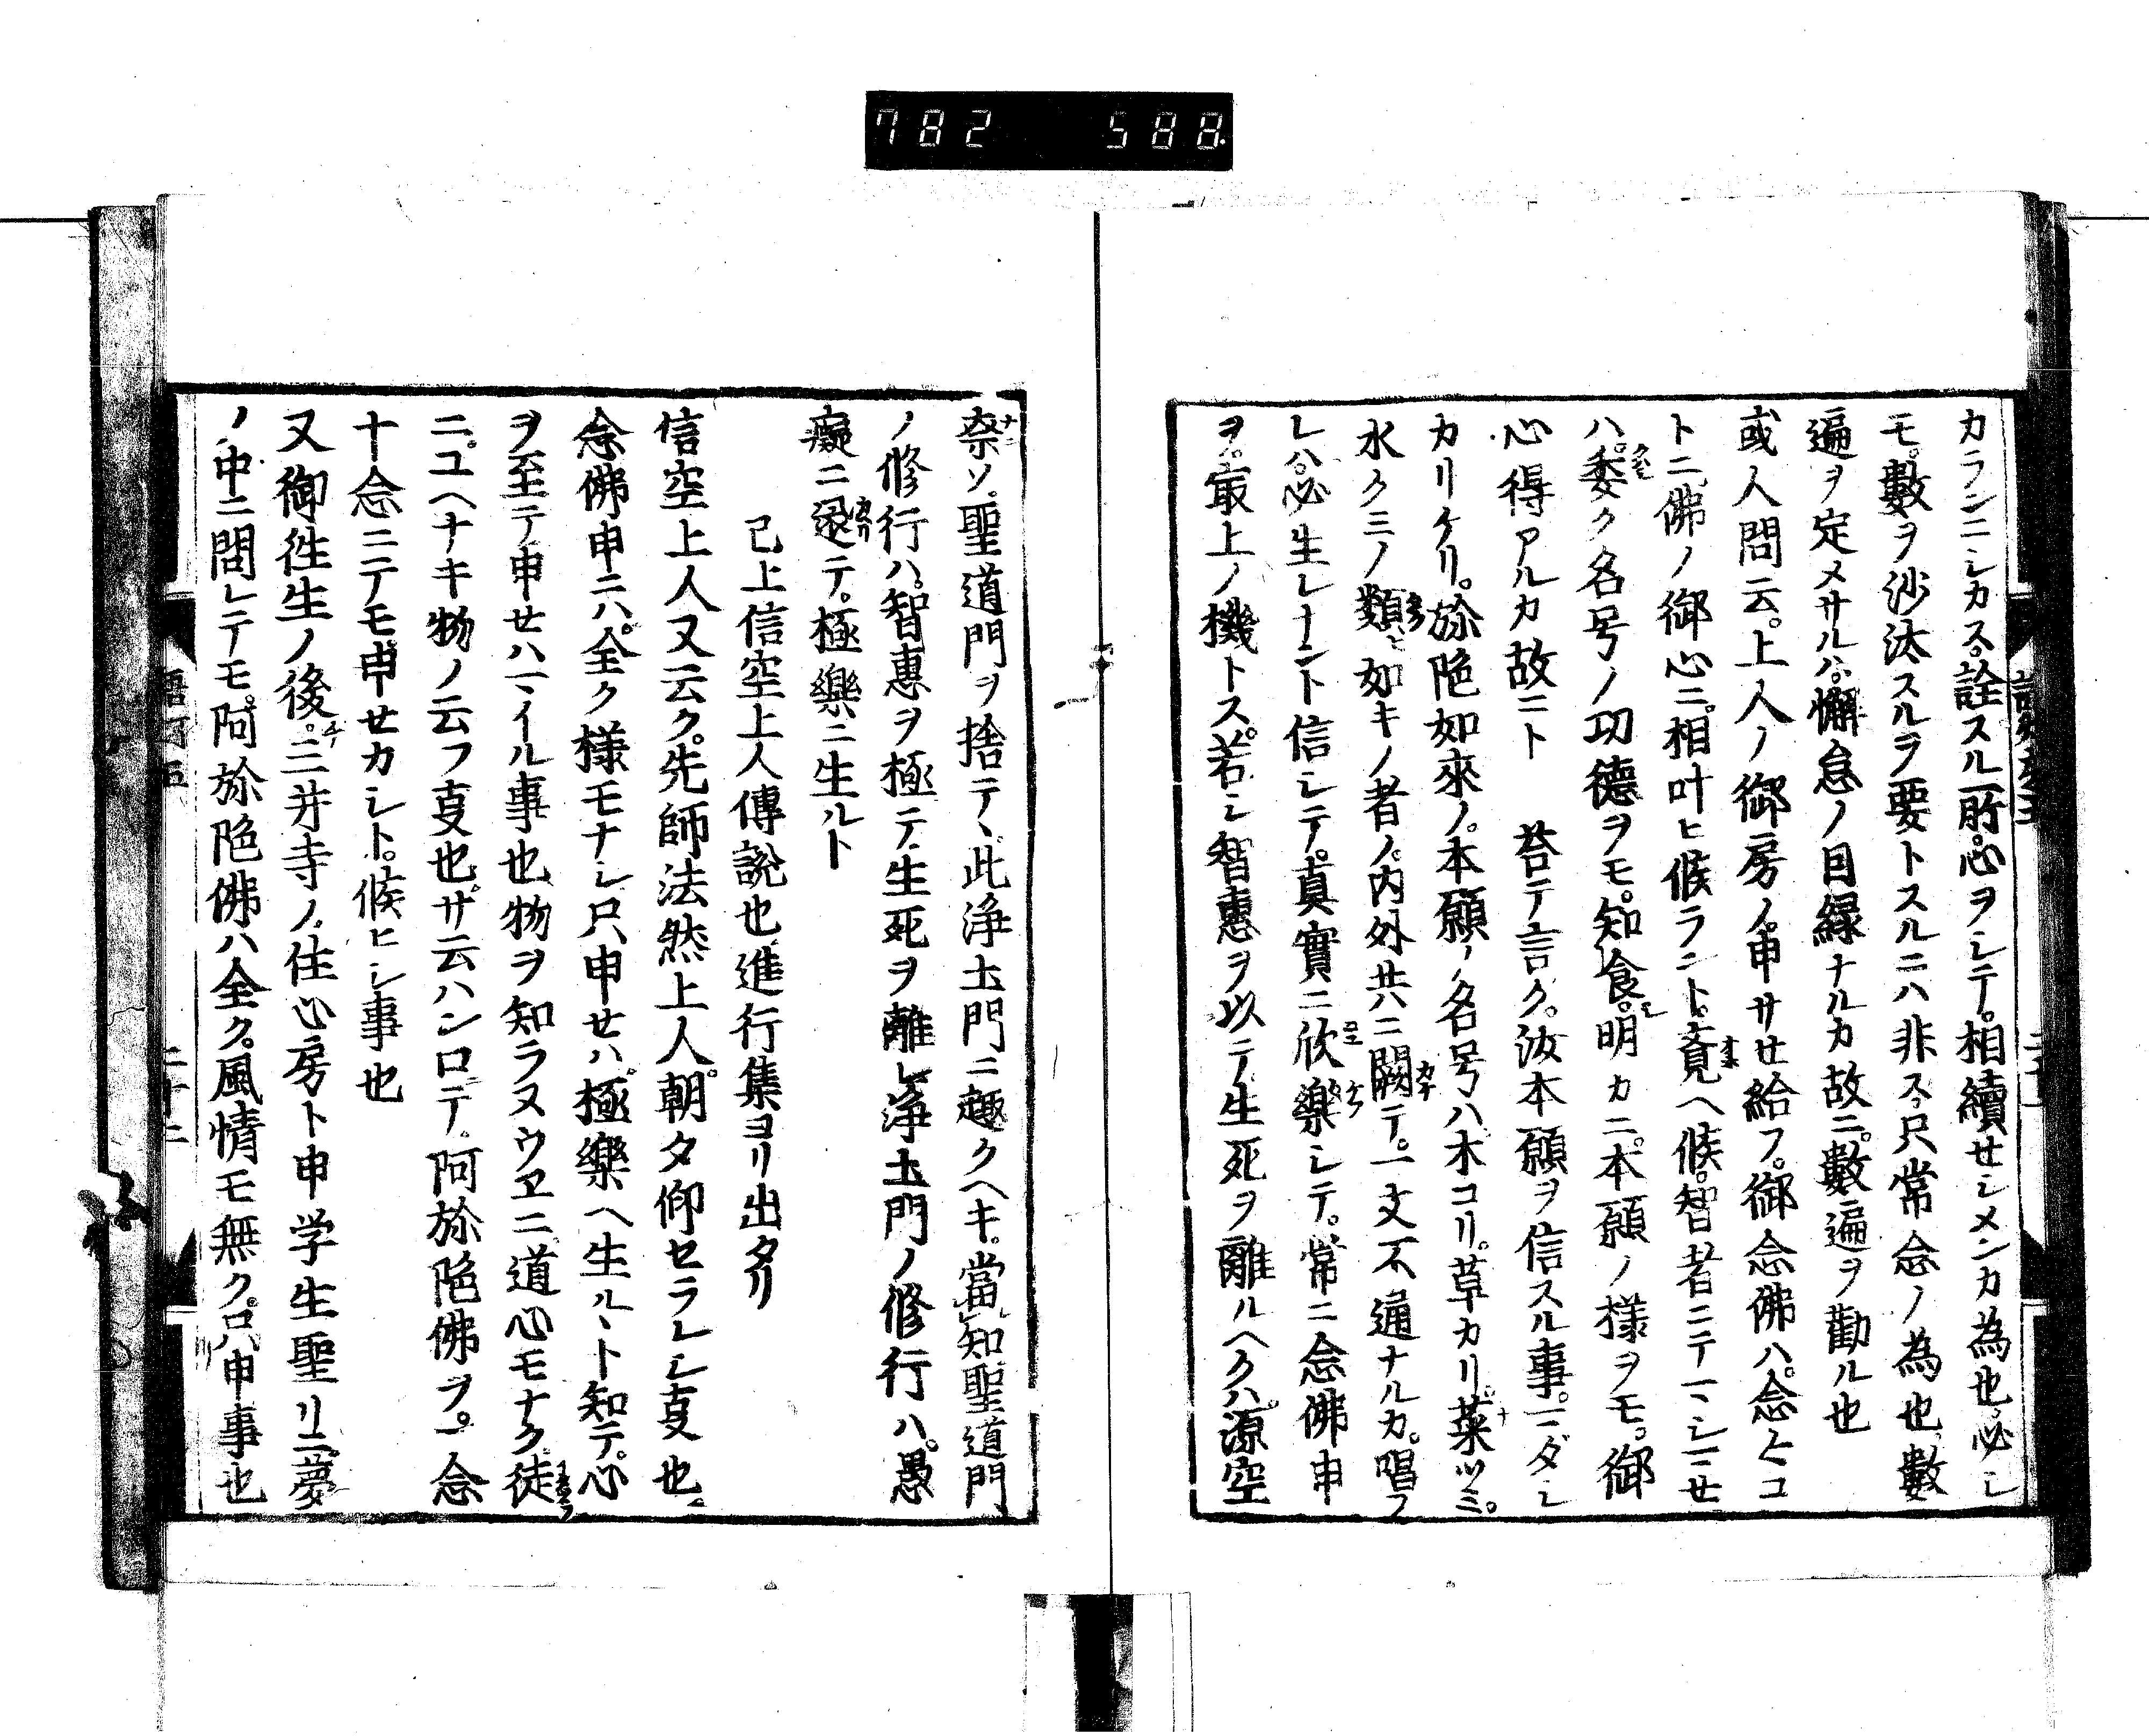 782 588
カランニシカス。詮スル所。心ヲシテ。相續セシメンカ為也。必シ
モ。數ヲ沙汰スルヲ要トスルニハ非ス。只常念ノ為也。數
遍ヲ定メサルハ。懈怠ノ因縁ナルカ故ニ。數遍ヲ勸ル也
或人問云。上人ノ御房ノ。申サセ給フ。御念佛ハ。念々コ
トニ佛ノ御心ニ。相叶ヒ候ラント。覚ヘ候。智者ニテマシマセ
ハ。委ク名号ノ功德ヲモ。知食。明カニ。本願ノ様ヲモ。御
心得アルカ故ニト 荅テ言ク。汝本願ヲ信スル事。マダシ
カリケリ。弥陀如來ノ。本願ノ名号ハ。木コリ。草カリ。菜ツミ。
水クミノ類ヒ如キノ者ノ。内外共ニ闕テ。一文不通ナルカ。唱フ
レハ。必生レナント信シテ。真實ニ欣樂シテ。常ニ念佛申
ヲ。㝡上ノ機トス。若シ智惠ヲ以テ生死ヲ離ルヘクハ。源空
奈ソ。聖道門ヲ捨テ、此浄土門ニ趣クヘキ。當知聖道門
ノ修行ハ。智惠ヲ極テ。生死ヲ離レ。浄土門ノ修行ハ。愚
癡ニ還テ。極樂ニ生ルト
已上信空上人傳説也進行集ヨリ出タリ
信空上人又云ク。先師法然上人。朝タ仰セラレシ㕝也。
念佛申ニハ。全ク様モナシ。只申セハ。極樂ヘ生ル、ト知テ。心
ヲ至テ申セハマイル事也。物ヲ知ラヌウヱニ道心モナク徒
ニ。ユヘナキ物ノ云フ㕝也。サ云ハン口テ。阿弥陀佛ヲ。一念
十念ニテモ。申セカシト。候ヒシ事也
又御徃生ノ後。三井寺ノ。住心房ト申学生聖リニ。夢
ノ中ニ問レテモ。阿弥陀佛ハ全ク。風情モ無ク。口ハ申事也